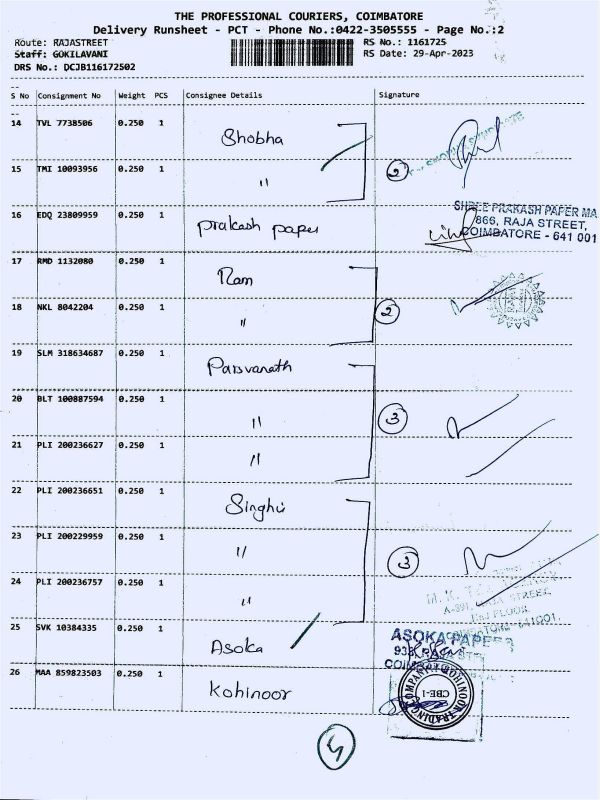 THE PROFESSIONAL COURIERS, COIMBATORE
Delivery Runsheet - PCT - Phone No.:0422-3505555 - Page No.:2
Route: RAJASTREET RS No.: 1161725
Staff: GOKILAVANI RS Date: 29-Apr-2023
DRS No.: DCJB116172502
S No Consignment No Weight PCS Consignee Details Signature
14 TVL 7738506 0.250 1 Shobha
15 TMI 10093956 0.250 1 " 2
16 EDQ 23809959 0.250 1 prakash paper
SHREE PRAKASH PAPER MA
866, RAJA STREET,
COIMBATORE - 641 001
17 RMD 1132080 0.250 1 Ram
18 NKL 8042204 0.250 1 " 2
19 SLM 318634687 0.250 1 Parsvanath
20 BLT 100887594 0.250 1 " 3
21 PLI 200236627 0.250 1 "
22 PLI 200236651 0.250 1 Singhvi
23 PLI 200229959 0.250 1 " 3
24 PLI 200236757 0.250 1 "
M. K.
STREET,
FLOOR,
641001.
25 SVK 10384335 0.250 1 Asoka
ASOKA PAPERS
RAJA ST
26 MAA 859823503 0.250 1 Kohinoor
KOHINOOR TRADING COMPANY
CBE-1